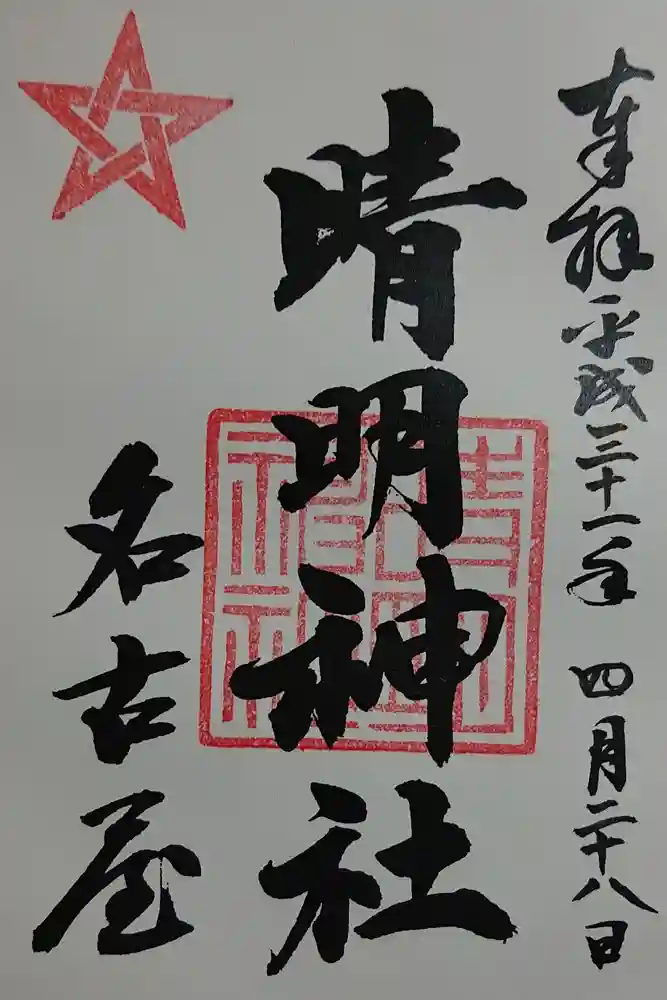 奉拝平成三十一年四月二十八日
晴明神社
名古屋